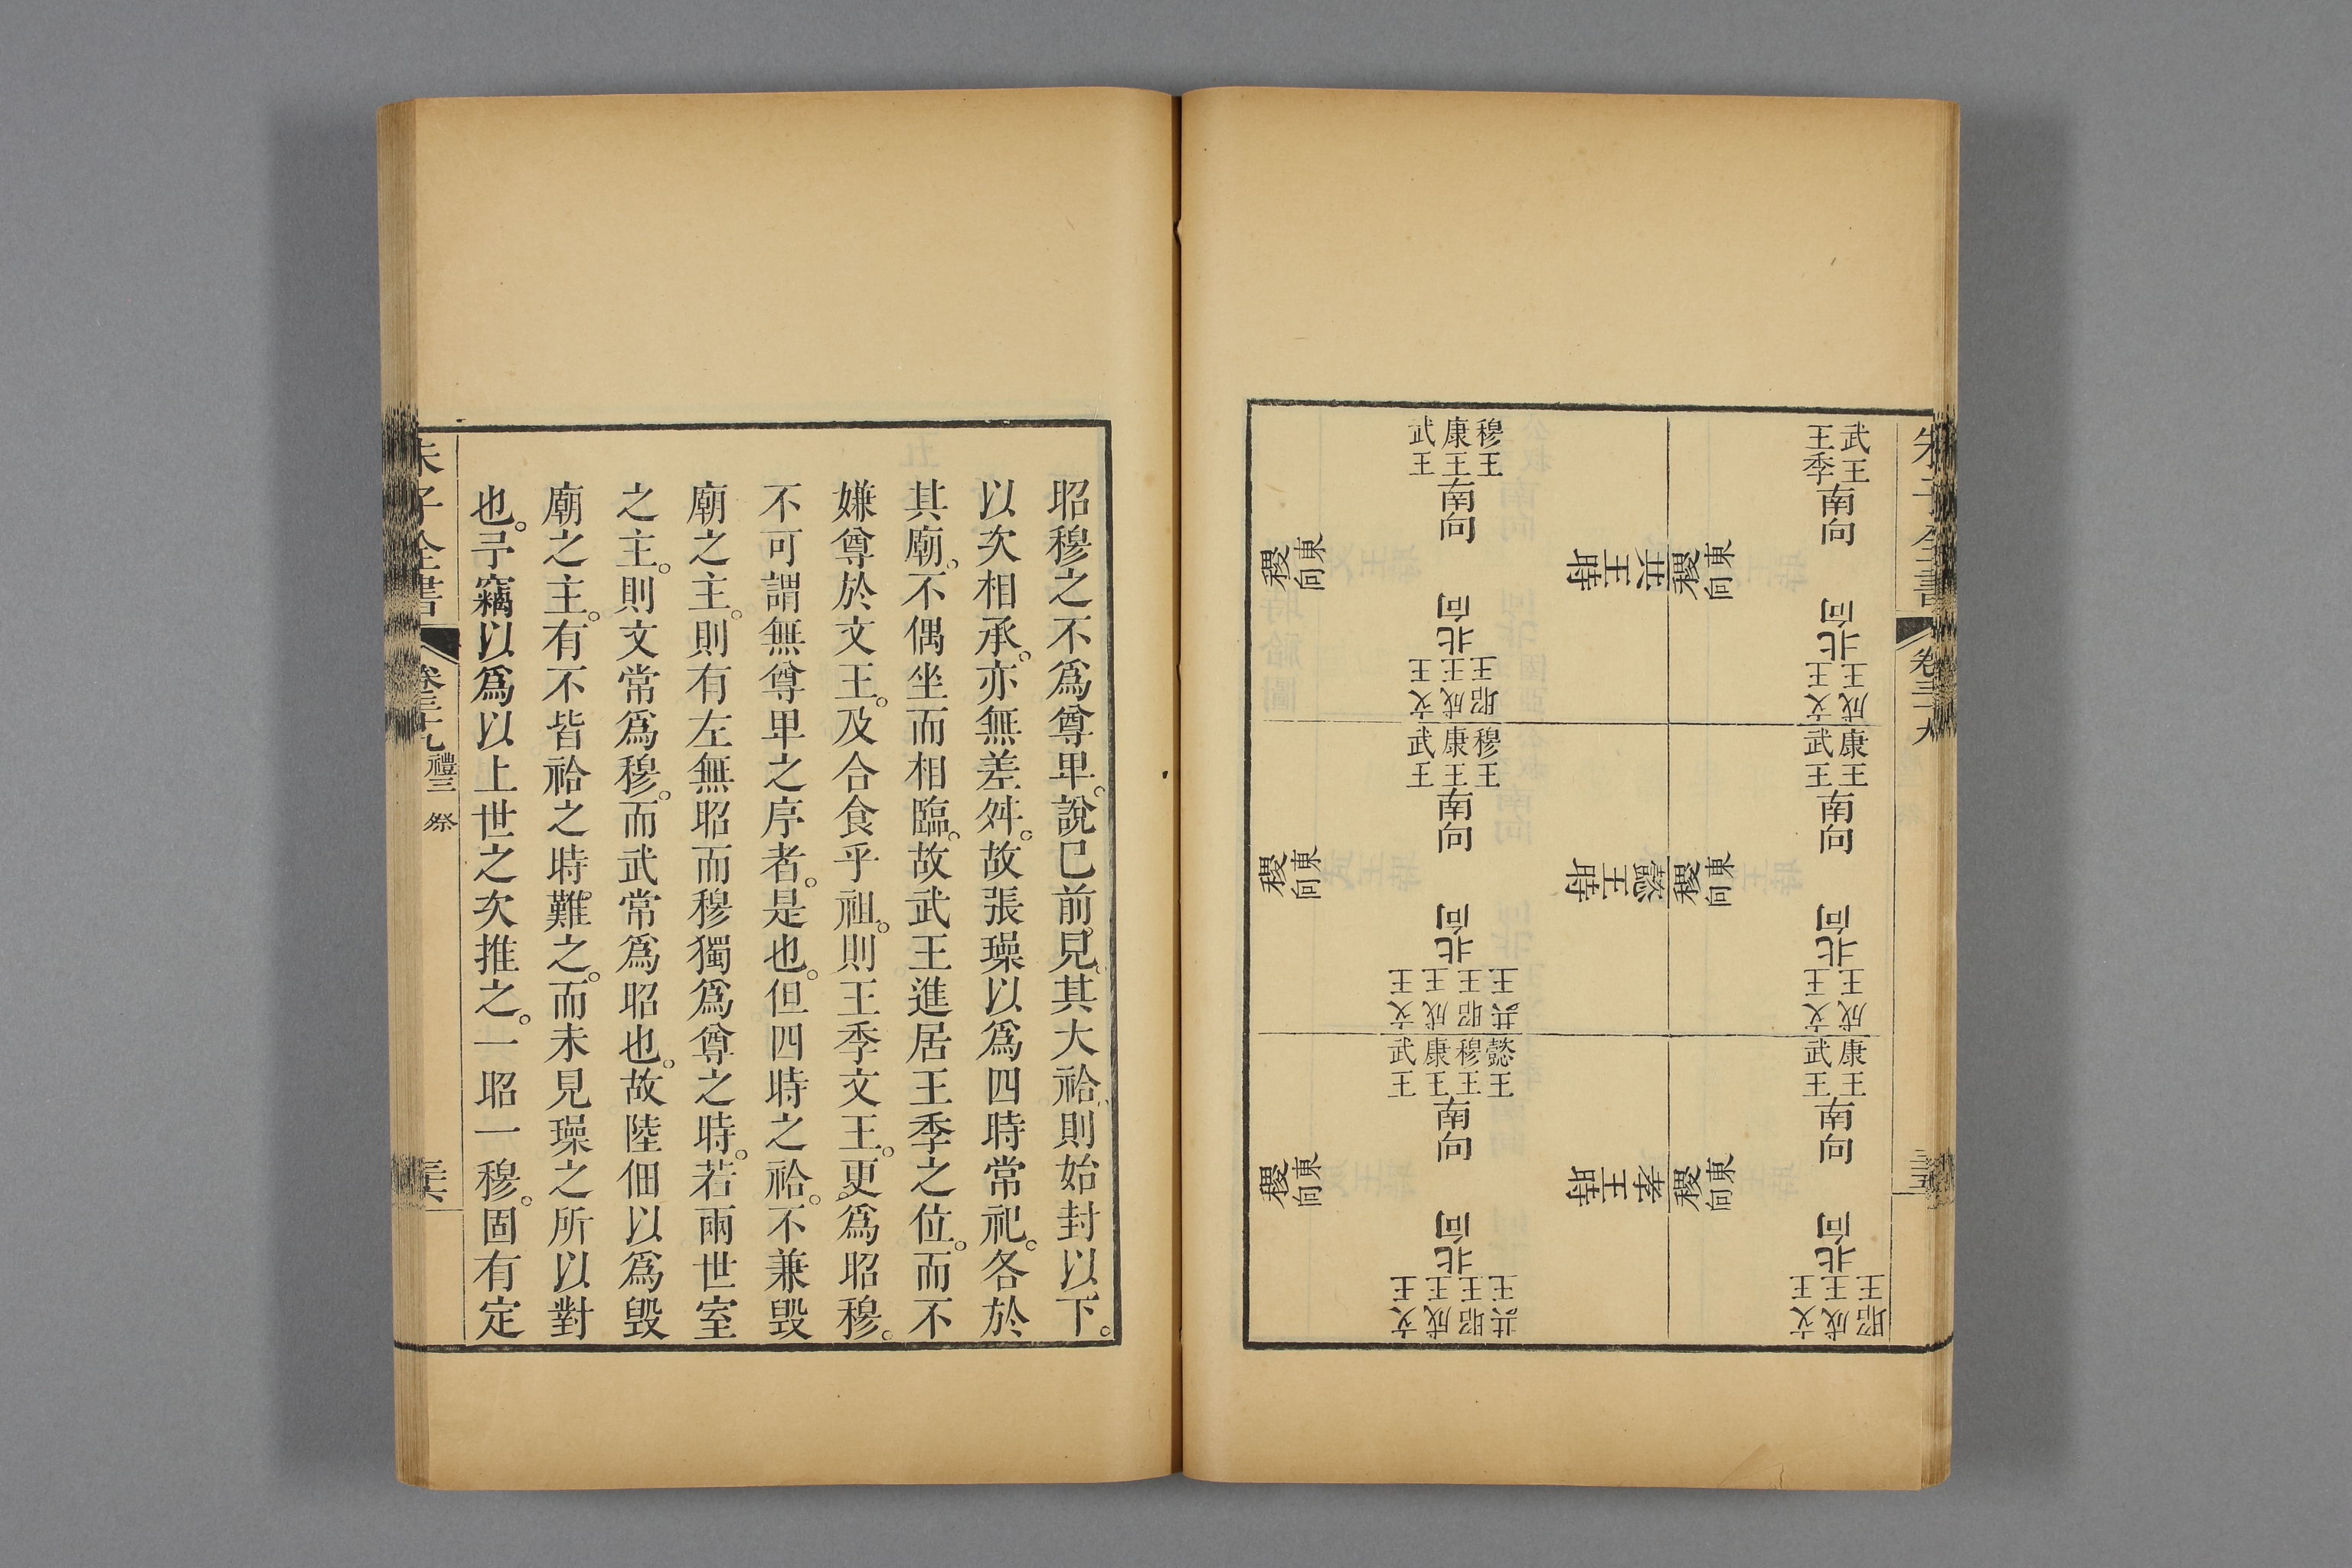 朱子全書 卷三十九
三十五
武王
王季
南向
稷東向
北向
成王
文王
康王
武王
南向
稷東向
北向
成王
文王
康王
武王
南向
稷東向
北向
昭王
成王
文王
共王時
懿王時
孝王時
穆王
康王
武王
南向
稷東向
北向
昭王
成王
文王
穆王
康王
武王
南向
稷東向
北向
共王
昭王
成王
文王
懿王
穆王
康王
武王
南向
稷東向
北向
共王
昭王
成王
文王
昭穆之不爲尊卑。說已前見。其大祫則始封以下。
以次相承。亦無差舛。故張璪以爲四時常祀。各於
其廟。不偶坐而相臨。故武王進居王季之位。而不
嫌尊於文王。及合食乎祖。則王季文王。更爲昭穆。
不可謂無尊卑之序者。是也。但四時之祫。不兼毁
廟之主。則有左無昭而穆獨爲尊之時。若兩世室
之主。則文常爲穆。而武常爲昭也。故陸佃以爲毁
廟之主。有不皆祫之時。難之。而未見璪之所以對
也。予竊以爲以上世之次推之。一昭一穆。固有定
朱子全書 卷三十九 禮三 祭
三十六